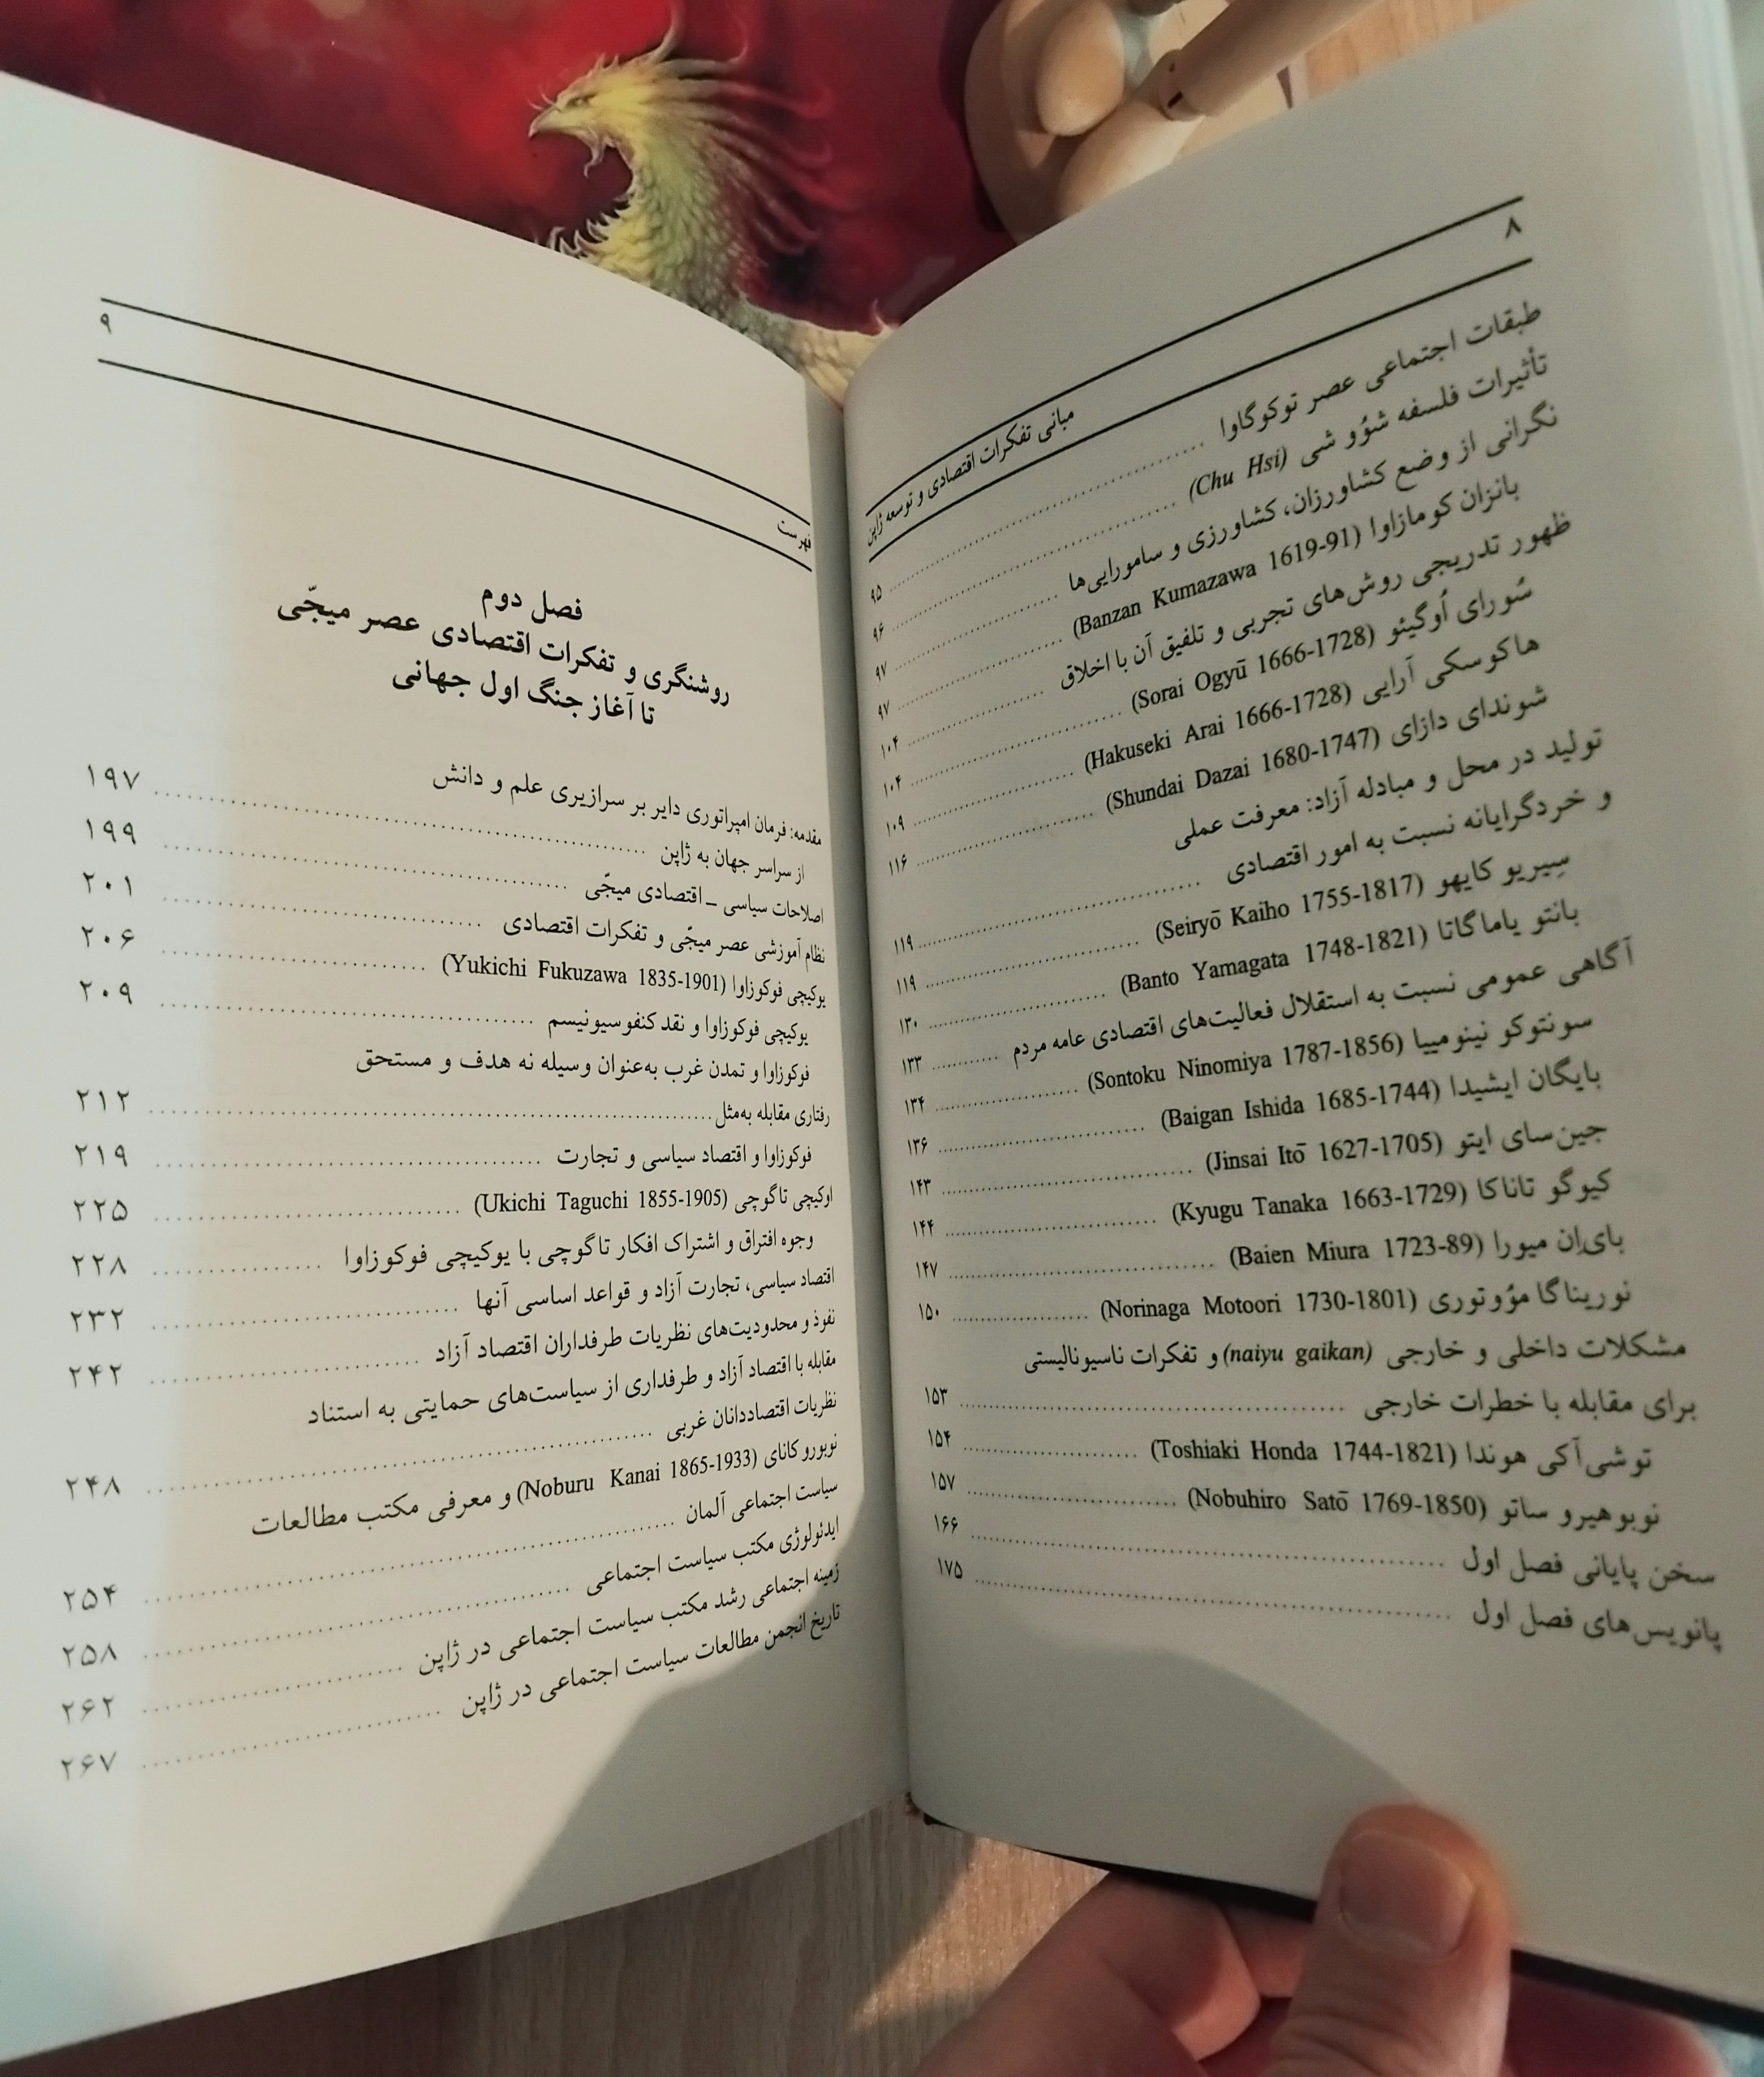 ۸
مبانی تفکرات اقتصادی و توسعه ژاپن
طبقات اجتماعی عصر توکوگاوا ........ ۹۵
تأثیرات فلسفه شوُو شی (Chu Hsi) ........ ۹۶
نگرانی از وضع کشاورزان، کشاورزی و سامورایی‌ها ........ ۹۷
بانزان کومازاوا (Banzan Kumazawa 1619-91) ........ ۹۷
ظهور تدریجی روش‌های تجربی و تلفیق آن با اخلاق ........ ۱۰۴
سُورای اُوگیئو (Sorai Ogyū 1666-1728) ........ ۱۰۴
هاکوسکی آرایی (Hakuseki Arai 1666-1728) ........ ۱۰۹
شوندای دازای (Shundai Dazai 1680-1747) ........ ۱۱۶
تولید در محل و مبادله آزاد: معرفت عملی
و خردگرایانه نسبت به امور اقتصادی ........ ۱۱۹
سِیریو کایهو (Seiryō Kaiho 1755-1817) ........ ۱۱۹
بانتو یاماگاتا (Banto Yamagata 1748-1821) ........ ۱۳۰
آگاهی عمومی نسبت به استقلال فعالیت‌های اقتصادی عامه مردم ........ ۱۳۳
سونتوکو نینومییا (Sontoku Ninomiya 1787-1856) ........ ۱۳۴
بایگان ایشیدا (Baigan Ishida 1685-1744) ........ ۱۳۶
جین‌سای ایتو (Jinsai Itō 1627-1705) ........ ۱۴۳
کیوگو تاناکا (Kyugu Tanaka 1663-1729) ........ ۱۴۴
بای‌اِن میورا (Baien Miura 1723-89) ........ ۱۴۷
نوریناگا موُوتوری (Norinaga Motoori 1730-1801) ........ ۱۵۰
مشکلات داخلی و خارجی (naiyu gaikan) و تفکرات ناسیونالیستی
برای مقابله با خطرات خارجی ........ ۱۵۳
توشی‌آکی هوندا (Toshiaki Honda 1744-1821) ........ ۱۵۴
نوبوهیرو ساتو (Nobuhiro Satō 1769-1850) ........ ۱۵۷
سخن پایانی فصل اول ........ ۱۶۶
پانویس‌های فصل اول ........ ۱۷۵
۹
فهرست
فصل دوم
روشنگری و تفکرات اقتصادی عصر میجّی
تا آغاز جنگ اول جهانی
مقدمه: فرمان امپراتوری دایر بر سرازیری علم و دانش
از سراسر جهان به ژاپن ........ ۱۹۷
اصلاحات سیاسی ـ اقتصادی میجّی ........ ۱۹۹
نظام آموزشی عصر میجّی و تفکرات اقتصادی ........ ۲۰۱
یوکیچی فوکوزاوا (Yukichi Fukuzawa 1835-1901) ........ ۲۰۶
یوکیچی فوکوزاوا و نقد کنفوسیونیسم ........ ۲۰۹
فوکوزاوا و تمدن غرب به‌عنوان وسیله نه هدف و مستحق
رفتاری مقابله به‌مثل ........ ۲۱۲
فوکوزاوا و اقتصاد سیاسی و تجارت ........ ۲۱۹
اوکیچی تاگوچی (Ukichi Taguchi 1855-1905) ........ ۲۲۵
وجوه افتراق و اشتراک افکار تاگوچی با یوکیچی فوکوزاوا ........ ۲۲۸
اقتصاد سیاسی، تجارت آزاد و قواعد اساسی آنها ........ ۲۳۲
نفوذ و محدودیت‌های نظریات طرفداران اقتصاد آزاد ........ ۲۴۲
مقابله با اقتصاد آزاد و طرفداری از سیاست‌های حمایتی به استناد
نظریات اقتصاددانان غربی ........ ۲۴۸
نوبورو کانای (Noburu Kanai 1865-1933) و معرفی مکتب مطالعات
سیاست اجتماعی آلمان ........ ۲۵۴
ایدئولوژی مکتب سیاست اجتماعی ........ ۲۵۸
زمینه اجتماعی رشد مکتب سیاست اجتماعی در ژاپن ........ ۲۶۲
تاریخ انجمن مطالعات سیاست اجتماعی در ژاپن ........ ۲۶۷